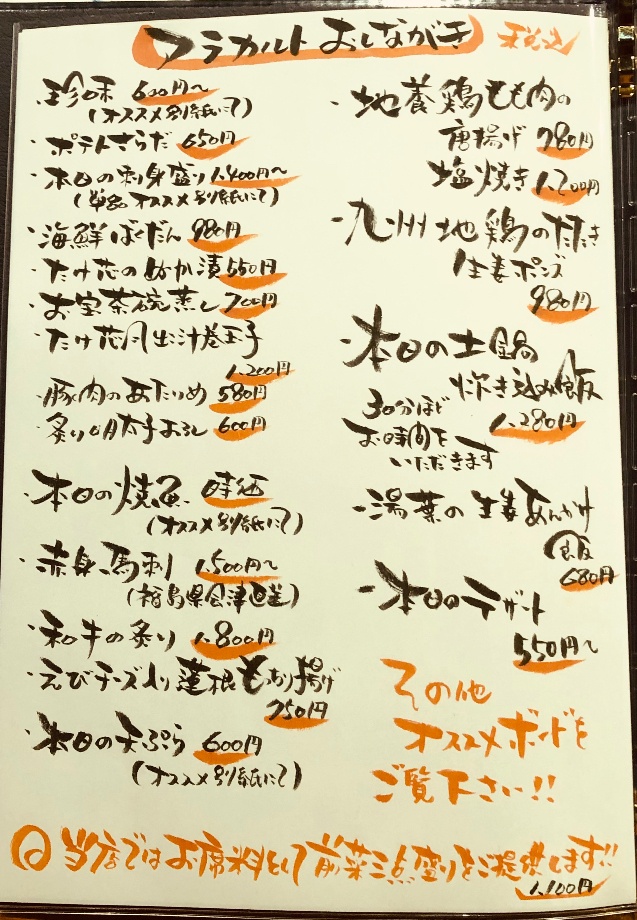 アラカルト おしながき 税込
・珍味 600円〜
(オススメ別紙にて)
・ポテトさらだ 650円
・本日の刺身盛り 1,400円〜
(単品オススメ別紙にて)
・海鮮ばくだん 980円
・たけ花のぬか漬 550円
・お宝茶碗蒸し 700円
・たけ花風出汁巻玉子
1,200円
・豚肉のあたりめ 580円
・炙り明太子おろし 600円
・本日の焼魚 時価
(オススメ別紙にて)
・赤身馬刺 1,500円〜
(福島県会津直送)
・和牛の炙り 1,800円
・えびチーズ入り蓮根もっちり揚げ
750円
・本日の天ぷら 600円
(オススメ別紙にて)
・地養鶏もも肉の
唐揚げ 780円
塩焼き 1,200円
・九州地鶏のたたき
生姜ポンズ
980円
・本日の土鍋
炊き込み飯
1,280円
30分ほど
お時間を
いただきます
・湯葉の生姜あんかけ
飯
680円
・本日のデザート
550円〜
その他
オススメボードを
ご覧下さい!!
◎当店ではお席料として前菜三点盛りをご提供します!!
1,100円